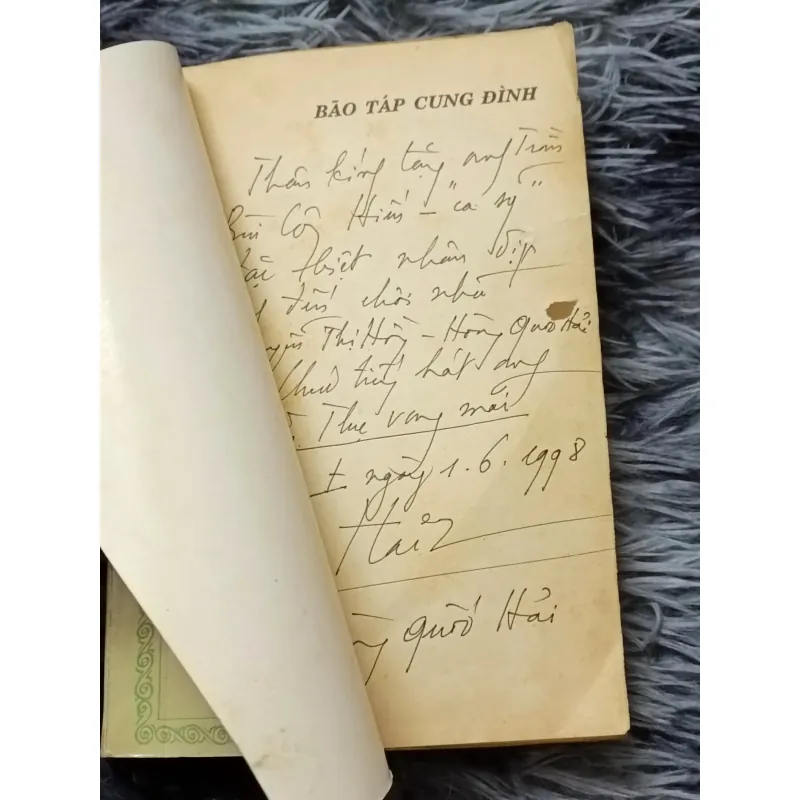 BÃO TÁP CUNG ĐÌNH
Thân kính tặng ông Trần
Bùi Công Hiến - "ca sỹ"
thiệt nhân dịp
đến chơi nhà
Thị Hồng - Hoàng Quốc Hải
Như tiếng hát ông
Thụ vang mãi
ngày 1.6.1998
Hải
Quốc Hải